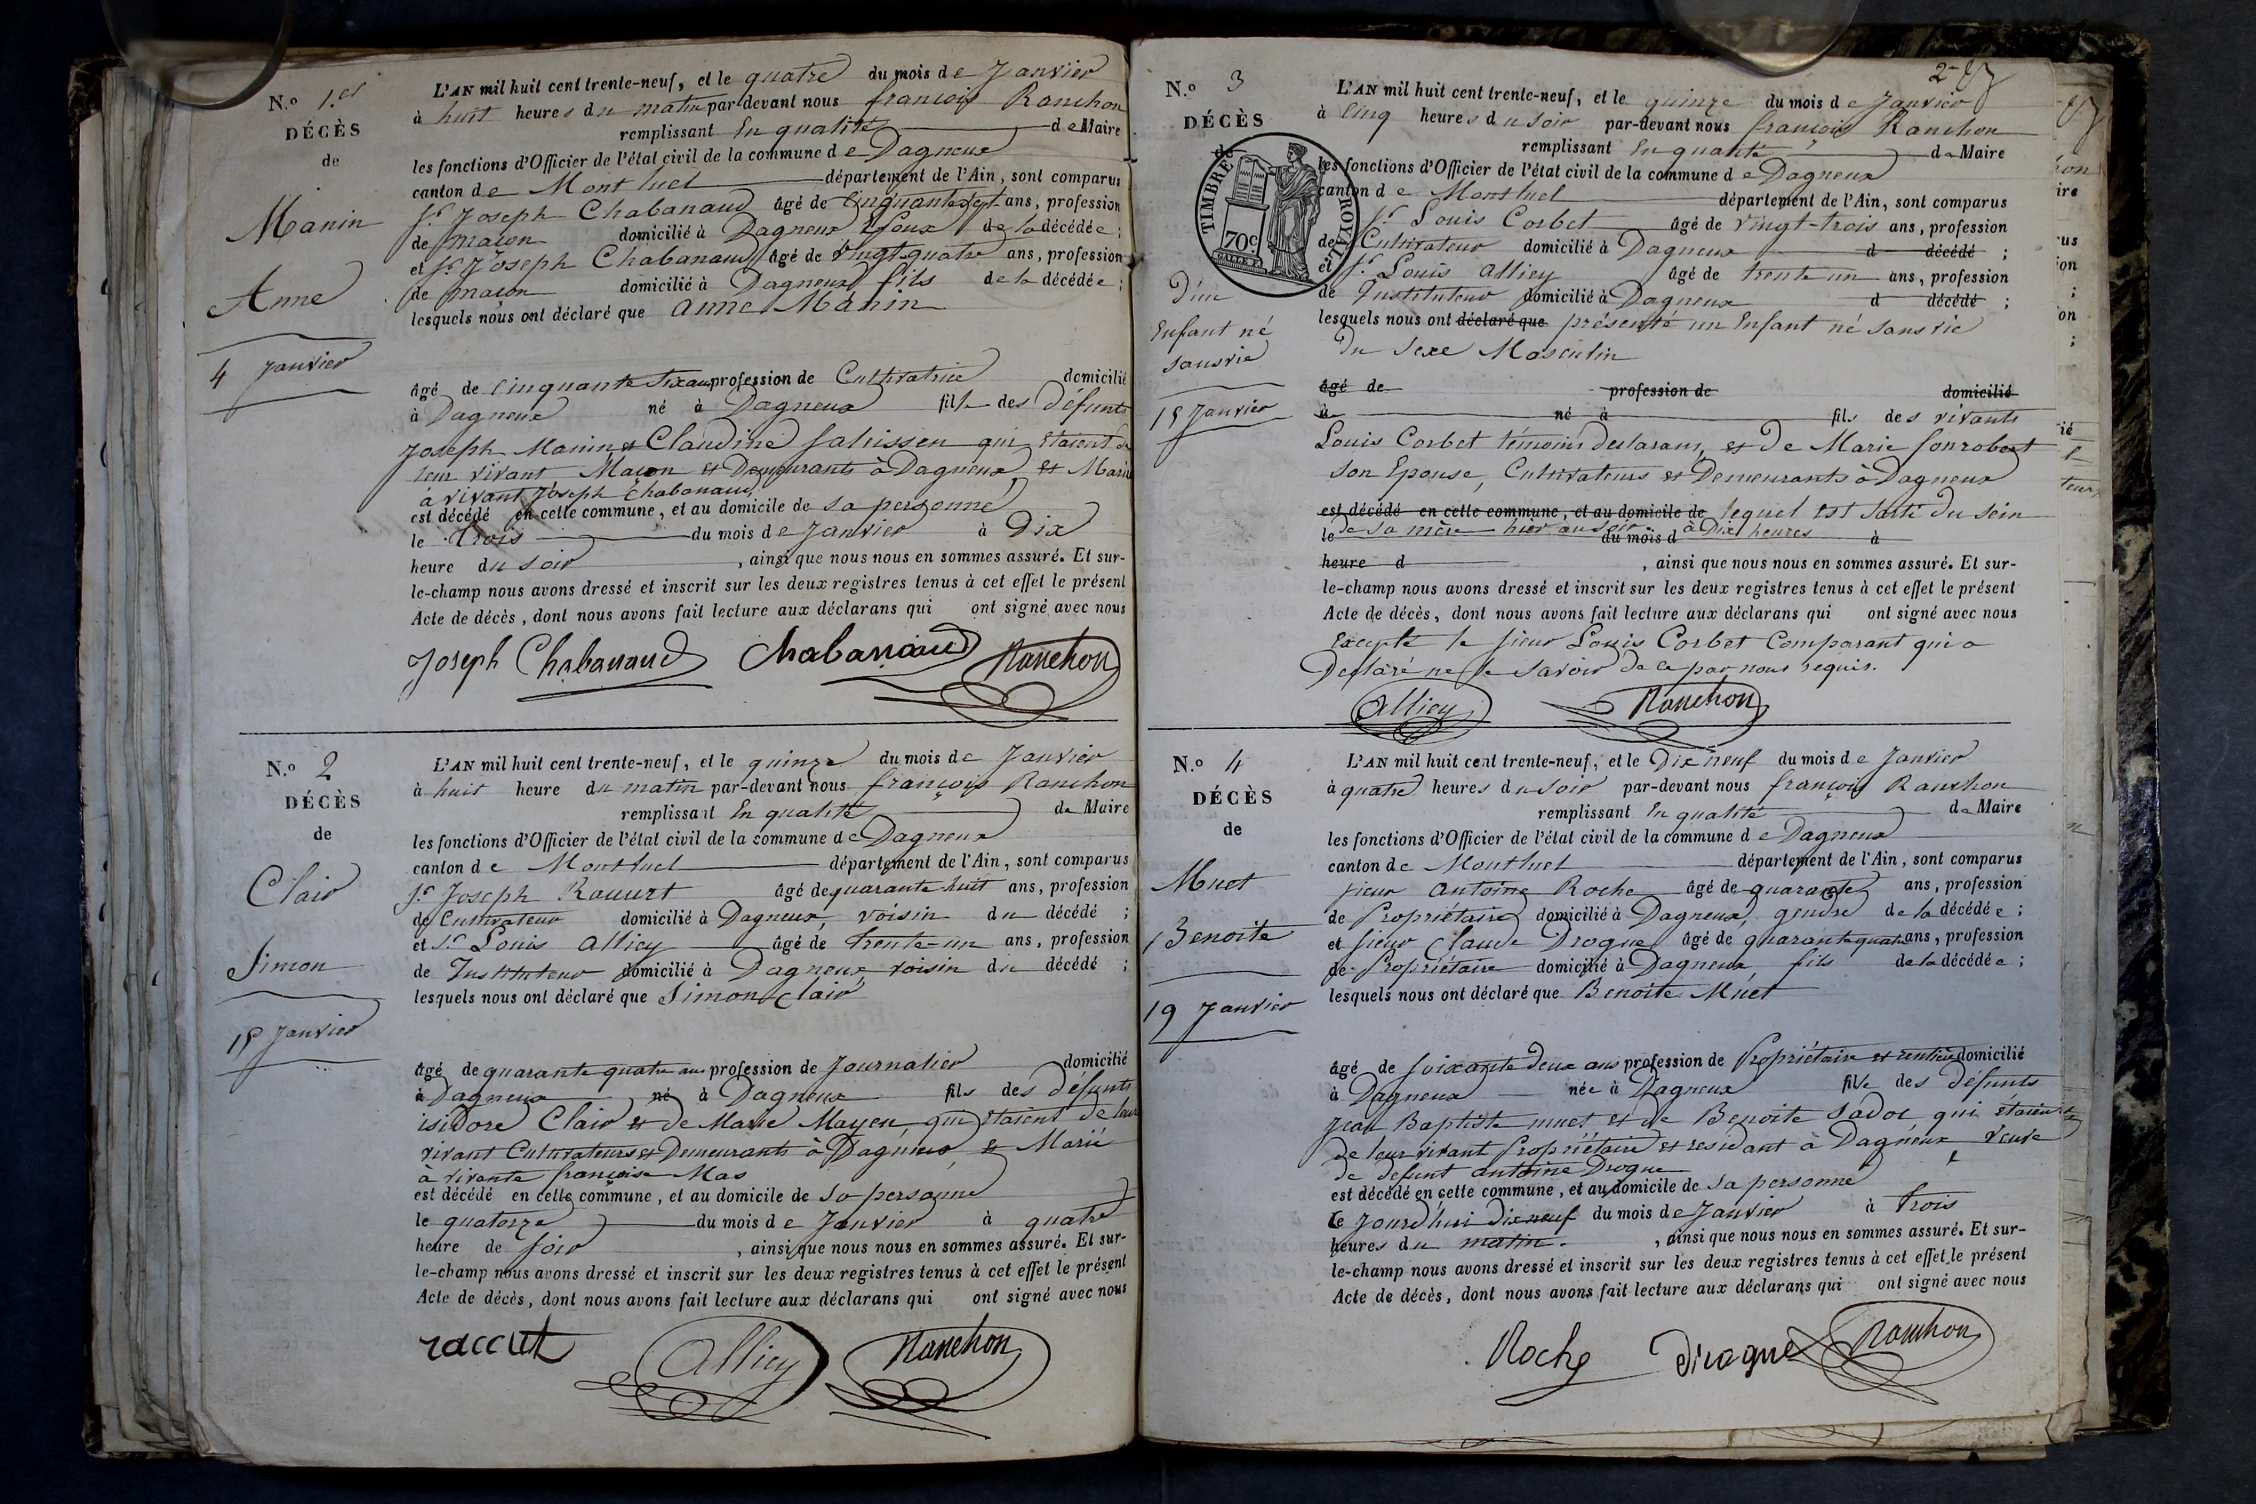 N.o 1.er
DÉCÈS
de
Manin
Anne
4 Janvier
L'AN mil huit cent trente-neuf, et le quatre du mois de Janvier
à huit heures du matin par-devant nous françois Ranchon
remplissant En qualité de Maire
les fonctions d'Officier de l'état civil de la commune de Dagneux
canton de Montluel département de l'Ain, sont comparus
Sr. Joseph Chabanaud âgé de Cinquante sept ans, profession
de maçon domicilié à Dagneux Epoux de la décédée ;
et Sr. Joseph Chabanaud âgé de vingt-quatre ans, profession
de maçon domicilié à Dagneux fils de la décédée ;
lesquels nous ont déclaré que Anne Manin
âgé de Cinquante Six ans profession de Cultivatrice domicilié
à Dagneux né à Dagneux fille des Défunts
Joseph Manin et Claudine qui Etaient de
leur vivant Maçon et Demeurants à Dagneux, et Marié
à vivant Joseph Chabanaud,
est décédé en cette commune, et au domicile de sa personne
le trois du mois de Janvier à Dix
heure du soir , ainsi que nous nous en sommes assuré. Et sur-
le-champ nous avons dressé et inscrit sur les deux registres tenus à cet effet le présent
Acte de décès, dont nous avons fait lecture aux déclarans qui ont signé avec nous
Joseph Chabanaud Chabanaud Ranchon
N.o 2
DÉCÈS
de
Clair
Simon
15 Janvier
L'AN mil huit cent trente-neuf, et le quinze du mois de Janvier
à huit heure du matin par-devant nous françois Ranchon
remplissant En qualité de Maire
les fonctions d'Officier de l'état civil de la commune de Dagneux
canton de Montluel département de l'Ain, sont comparus
Sr. Joseph Raccurt âgé de quarante huit ans, profession
de Cultivateur domicilié à Dagneux, voisin du décédé ;
et Sr. Louis Alliey âgé de trente-un ans, profession
de Instituteur domicilié à Dagneux, voisin du décédé ;
lesquels nous ont déclaré que Simon Clair
âgé de quarante quatre ans profession de Journalier domicilié
à Dagneux né à Dagneux fils des Défunts
isidore Clair et de Marie Mayen, qui Etaient de leur
vivant Cultivateurs et Demeurants à Dagneux, et Marié
à vivante françoise Mas
est décédé en cette commune, et au domicile de sa personne
le quatorze du mois de Janvier à quatre
heure de soir , ainsi que nous nous en sommes assuré. Et sur-
le-champ nous avons dressé et inscrit sur les deux registres tenus à cet effet le présent
Acte de décès, dont nous avons fait lecture aux déclarans qui ont signé avec nous
raccurt Alliey Ranchon
2
N.o 3
DÉCÈS
de
TIMBRE ROYAL
70c
D'un
Enfant né
sans vie
15 Janvier
L'AN mil huit cent trente-neuf, et le quinze du mois de Janvier
à Cinq heures du soir par-devant nous françois Ranchon
remplissant En qualité de Maire
les fonctions d'Officier de l'état civil de la commune de Dagneux
canton de Montluel département de l'Ain, sont comparus
Sr. Louis Corbet âgé de vingt-trois ans, profession
de Cultivateur domicilié à Dagneux d décédé ;
et Sr. Louis Alliey âgé de trente un ans, profession
de Instituteur domicilié à Dagneux d décédé ;
lesquels nous ont déclaré que présenté un Enfant né sans vie
du Sexe Masculin
âgé de profession de domicilié
à né à fils des vivants
Louis Corbet témoins declarans, et de Marie fonrobert
son Epouse, Cultivateurs et Demeurants à Dagneux
est décédé en cette commune, et au domicile de lequel est sorti du sein
de sa mère hier au soir à Dix heures
le du mois d à
heure d , ainsi que nous nous en sommes assuré. Et sur-
le-champ nous avons dressé et inscrit sur les deux registres tenus à cet effet le présent
Acte de décès, dont nous avons fait lecture aux déclarans qui ont signé avec nous
Excepté le sieur Louis Corbet Comparant qui a
Déclaré ne le savoir de ce par nous requis.
Alliey Ranchon
N.o 4
DÉCÈS
de
Muet
Benoite
19 Janvier
L'AN mil huit cent trente-neuf, et le Dix neuf du mois de Janvier
à quatre heures du soir par-devant nous françois Ranchon
remplissant En qualité de Maire
les fonctions d'Officier de l'état civil de la commune de Dagneux
canton de Montluel département de l'Ain, sont comparus
sieur Antoine Roche âgé de quarante ans, profession
de Propriétaire domicilié à Dagneux, gendre de la décédée ;
et sieur Claude Drogue âgé de quarante quatre ans, profession
de Propriétaire domicilié à Dagneux, fils de la décédée ;
lesquels nous ont déclaré que Benoite Muet
âgé de soixante Deux ans profession de Propriétaire et rentière domicilié
à Dagneux née à Dagneux fille des Défunts
Jean Baptiste muet et de Benoite Sadot qui étaient
de leur vivant Propriétaire et residant à Dagneux, veuve
de defunt antoine Drogue
est décédé en cette commune, et au domicile de sa personne
le jourd'hui Dix neuf du mois de Janvier à trois
heures du matin. , ainsi que nous nous en sommes assuré. Et sur-
le-champ nous avons dressé et inscrit sur les deux registres tenus à cet effet le présent
Acte de décès, dont nous avons fait lecture aux déclarans qui ont signé avec nous
Roche Drogue Ranchon